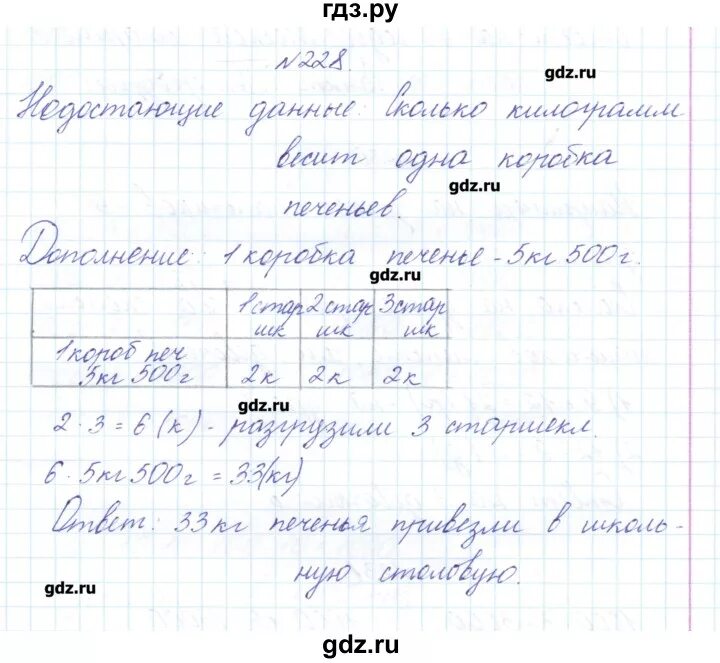 гдз.ру
№228.
gdz.ru
Недостающие данные: Сколько килограмм
весит одна коробка
gdz.ru
печеньев.
Дополнение: 1 коробка печенье - 5кг 500г.
gdz.ru
1 стар 2 стар 3 стар
шк шк шк
1 короб печ
5кг 500г 2к 2к 2к
gdz.ru
2 · 3 = 6 (к) - разгрузили 3 старшекл.
6 · 5кг 500г = 33(кг)
gdz.ru
Ответ: 33 кг печенья привезли в школь-
ную столовую.
gdz.ru
gdz.ru
gdz.ru